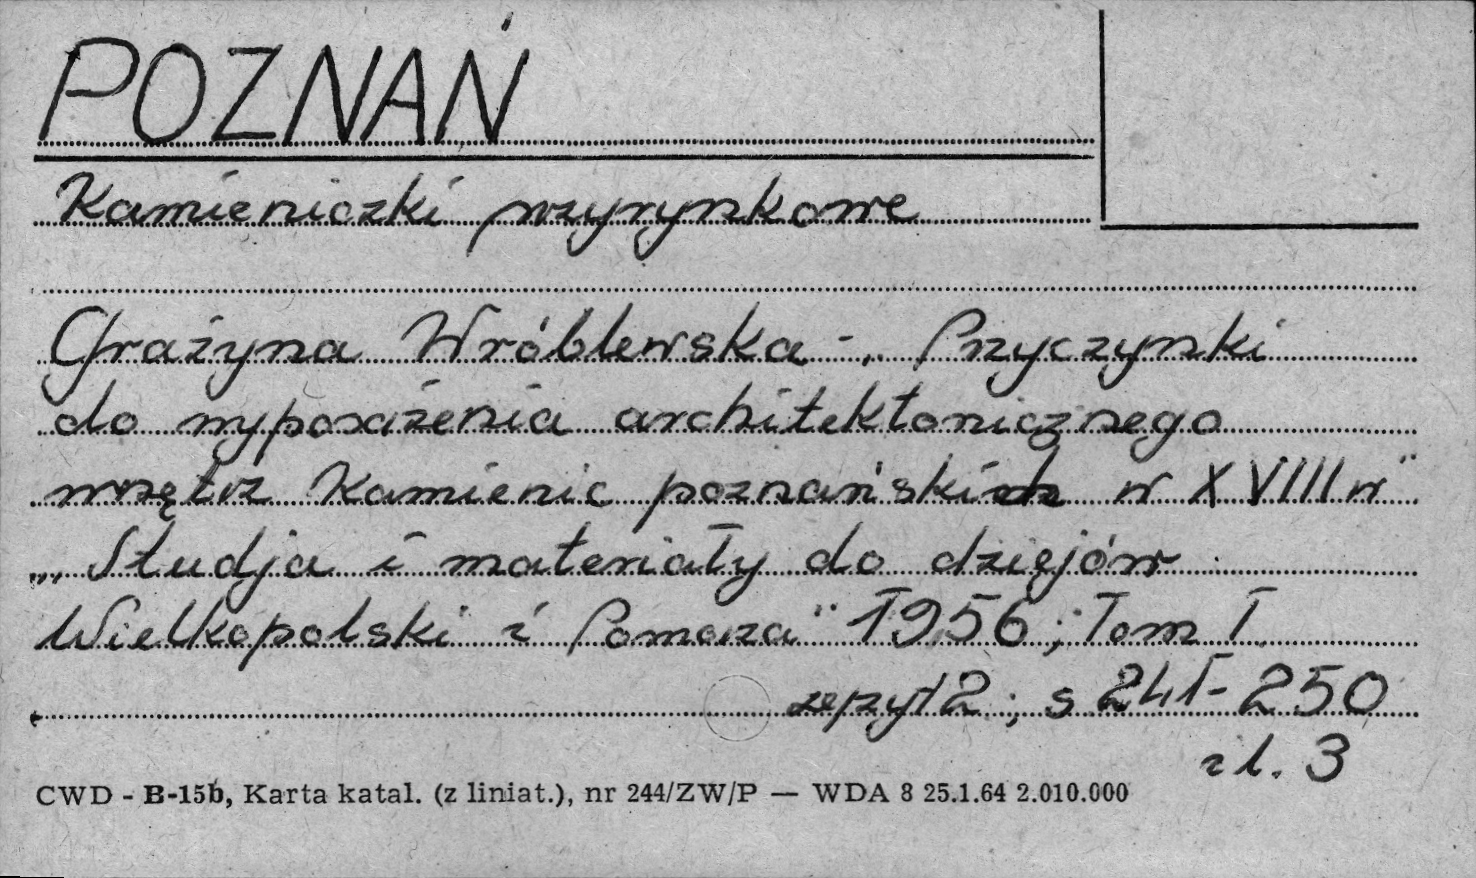 POZNAŃ
Kamieniczki przyrynkowe
Grażyna Wróblewska - „Przyczynki
do wyposażenia architektonicznego
wnętrz kamienic poznańskich w XVIII w"
„Studja i materiały do dziejów
Wielkopolski i Pomorza" 1956; Tom I
zeszyt 2; s 241-250
il. 3
CWD - B-15b, Karta katal. (z liniat.), nr 244/ZW/P — WDA 8 25.1.64 2.010.000